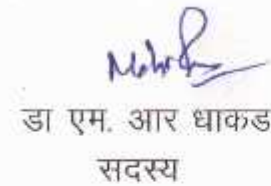 डा एम. आर धाकड
सदस्य